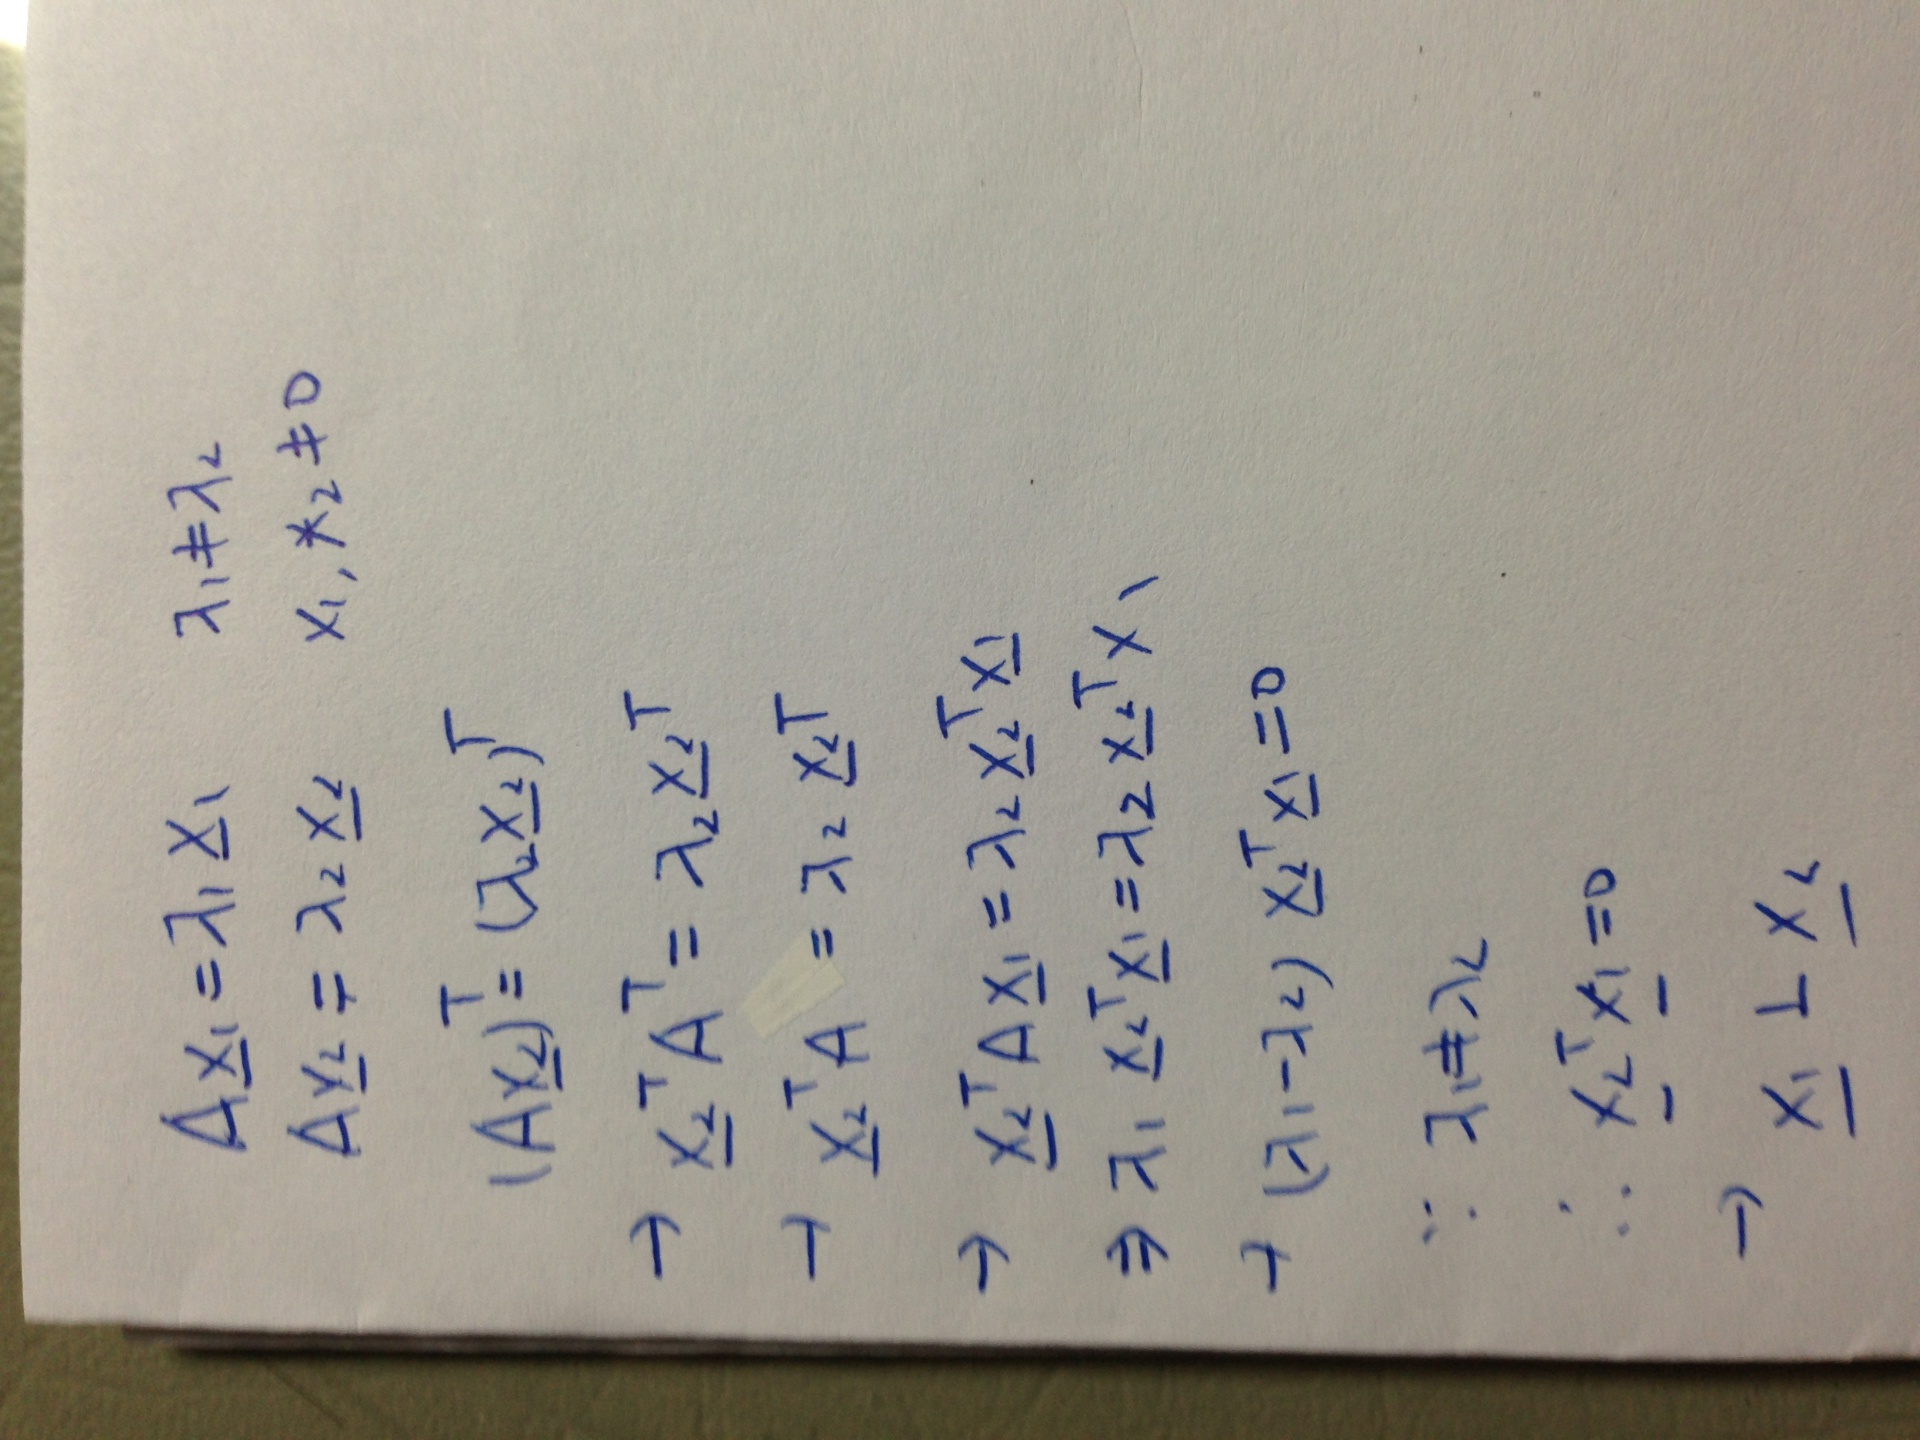 A x₁ = λ₁ x₁   λ₁ ≠ λ₂
A x₂ = λ₂ x₂   x₁, x₂ ≠ 0
(A x₂)ᵀ = (λ₂ x₂)ᵀ
→ x₂ᵀ Aᵀ = λ₂ x₂ᵀ
→ x₂ᵀ A = λ₂ x₂ᵀ
→ x₂ᵀ A x₁ = λ₂ x₂ᵀ x₁
⇒ λ₁ x₂ᵀ x₁ = λ₂ x₂ᵀ x₁
→ (λ₁ - λ₂) x₂ᵀ x₁ = 0
∵ λ₁ ≠ λ₂
∴ x₂ᵀ x₁ = 0
→ x₁ ⊥ x₂